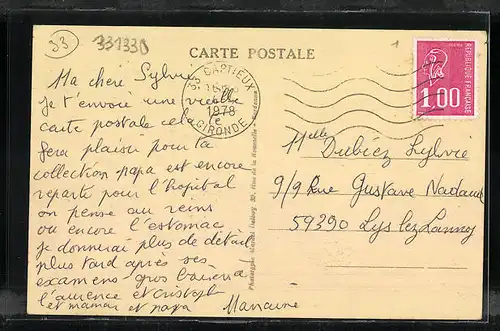 33
331330
CARTE POSTALE
1
33 CAPTIEUX
1978
GIRONDE
REPUBLIQUE FRANCAISE
1,00
Ma chère Sylvie
je t'envoie une vieille
carte postale cela te
fera plaisir pour ta
collection papa est encore
reparti pour l'hopital
on pense au reins
ou encore l'estomac
je donnerai plus de détail
plus tard après ses
examens gros
et
et maman et papa
11elle Dubiez Sylvie
9/9 Rue Gustave Nadaud
59390 Lys lez Lannoy